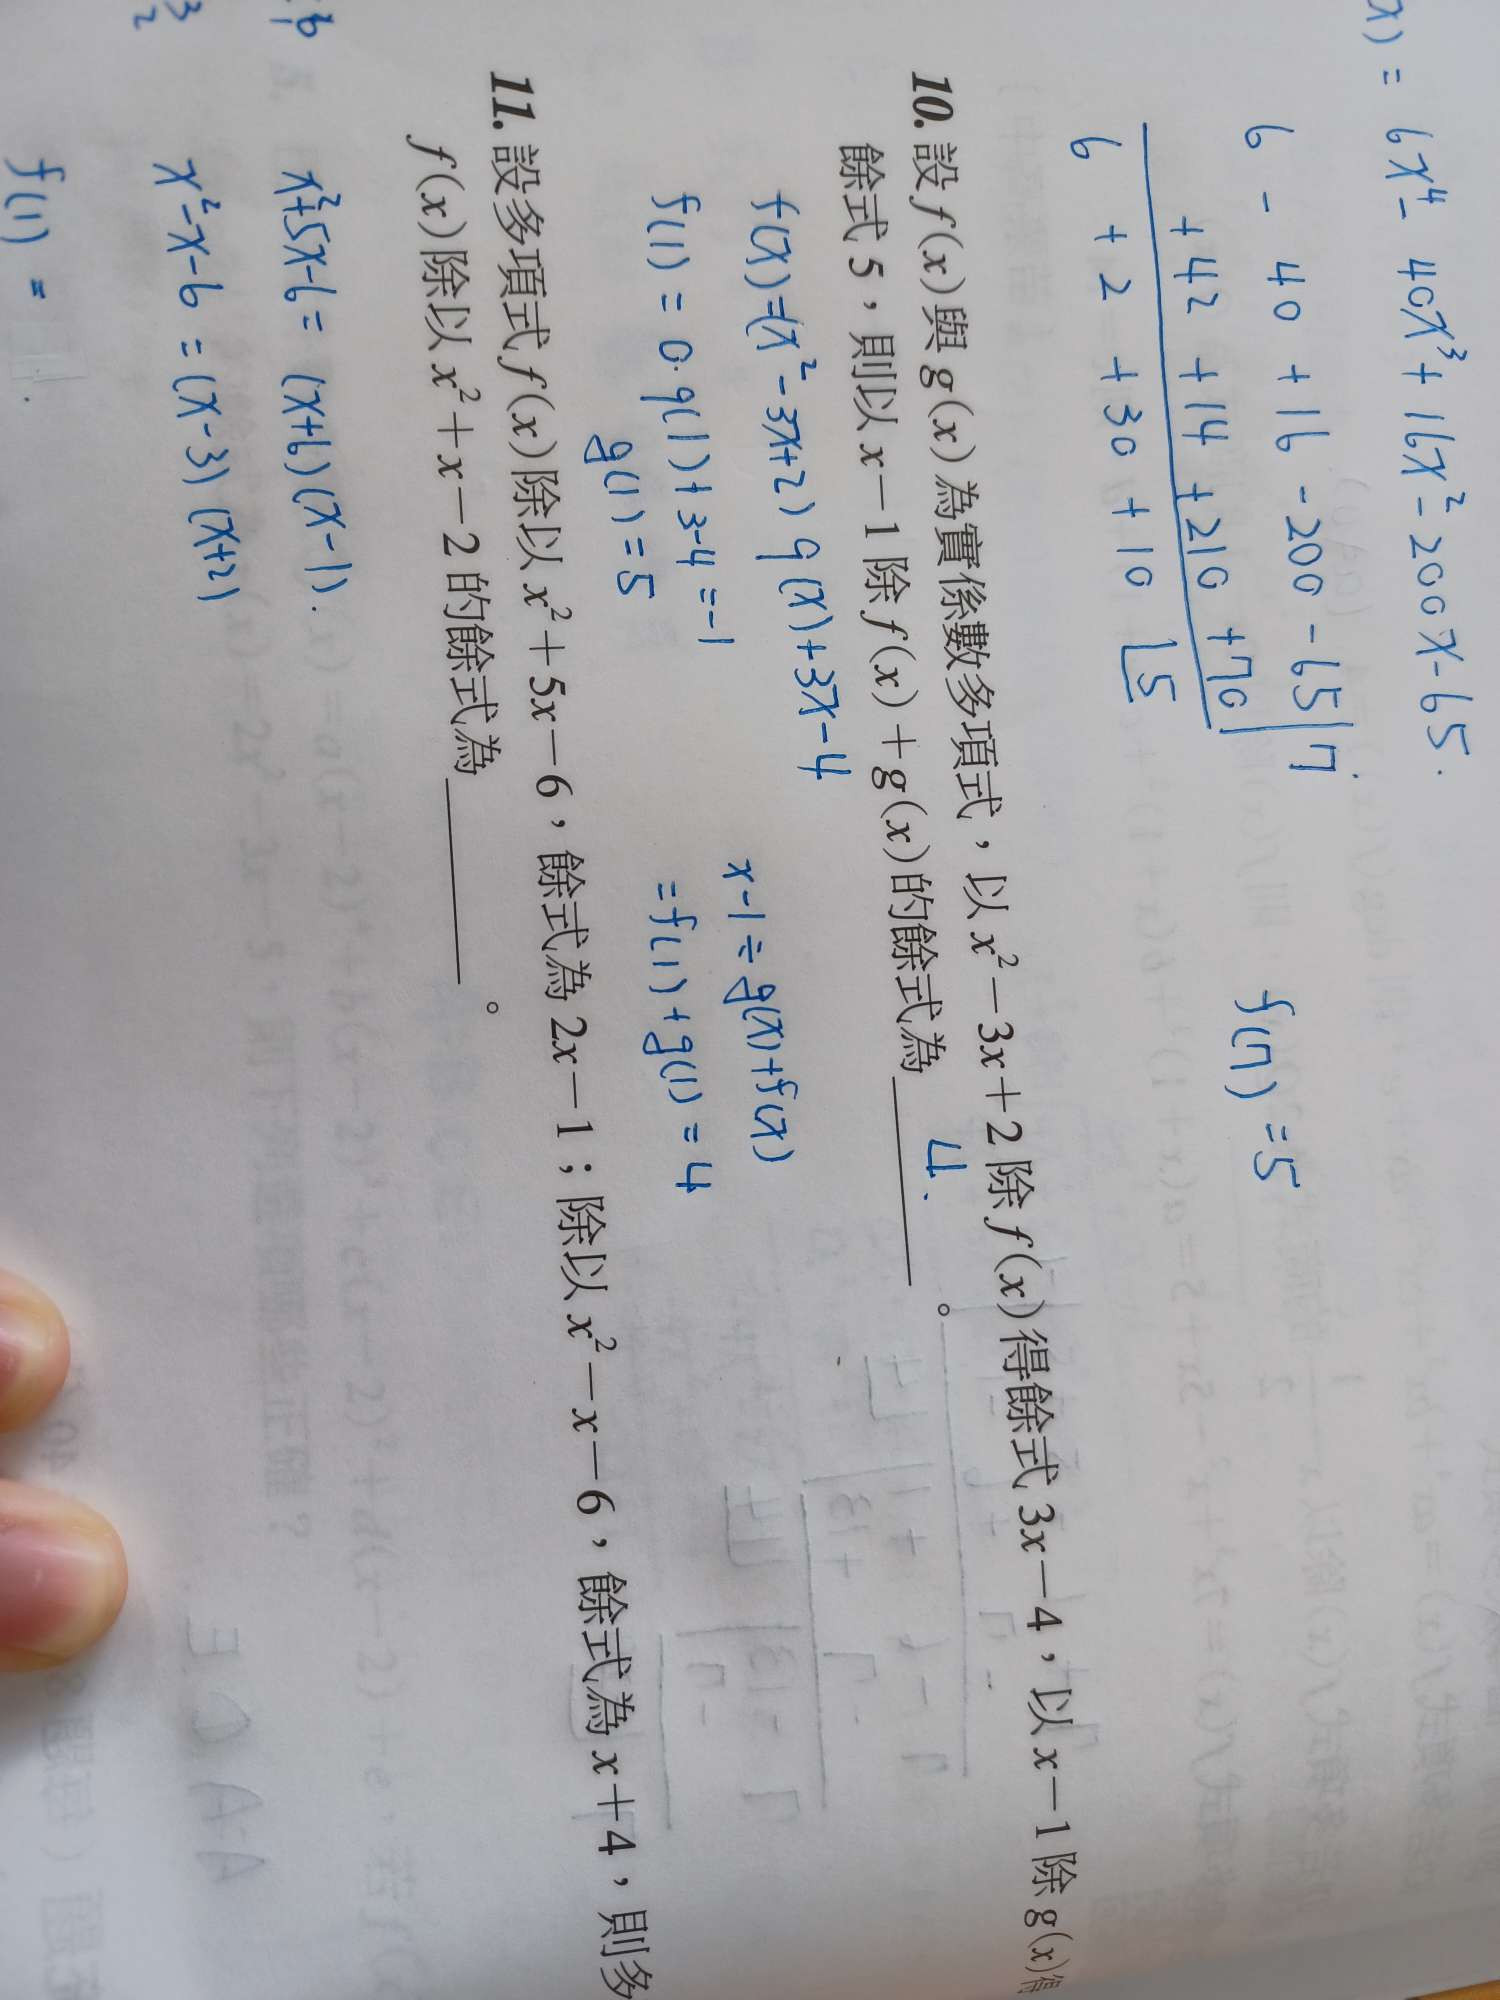 x) = 6x⁴ - 40x³ + 16x² - 200x - 65.
6 - 40 + 16 - 200 - 65 | 7
+ 42 + 14 + 210 + 70
6 + 2 + 30 + 10 | 5
f(7) = 5
10. 設 f(x) 與 g(x) 為實係數多項式，以 x²－3x＋2 除 f(x) 得餘式 3x－4，以 x－1 除 g(x) 得
餘式 5，則以 x－1 除 f(x)＋g(x) 的餘式為 4. 。
f(x) = (x² - 3x + 2) q(x) + 3x - 4
f(1) = 0·q(1) + 3 - 4 = -1
g(1) = 5
x - 1 ÷ g(x) + f(x)
= f(1) + g(1) = 4
11. 設多項式 f(x) 除以 x²＋5x－6，餘式為 2x－1；除以 x²－x－6，餘式為 x＋4，則多
f(x) 除以 x²＋x－2 的餘式為 。
x² + 5x - 6 = (x + 6)(x - 1).
x² - x - 6 = (x - 3)(x + 2)
f(1) =